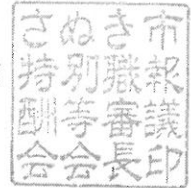 さぬき市
特別職報
酬等審議
会会長印